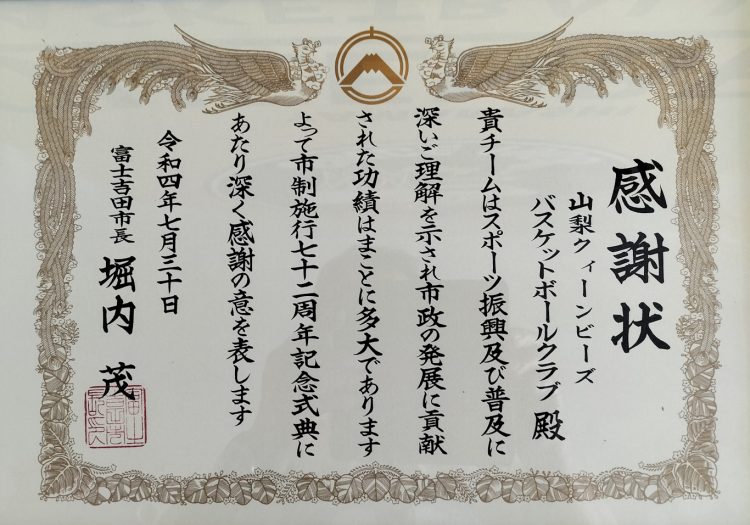 感謝状
山梨クィーンビーズ
バスケットボールクラブ 殿
貴チームはスポーツ振興及び普及に
深いご理解を示され市政の発展に貢献
された功績はまことに多大であります
よって市制施行七十二周年記念式典に
あたり深く感謝の意を表します
令和四年七月三十日
富士吉田市長 堀内 茂